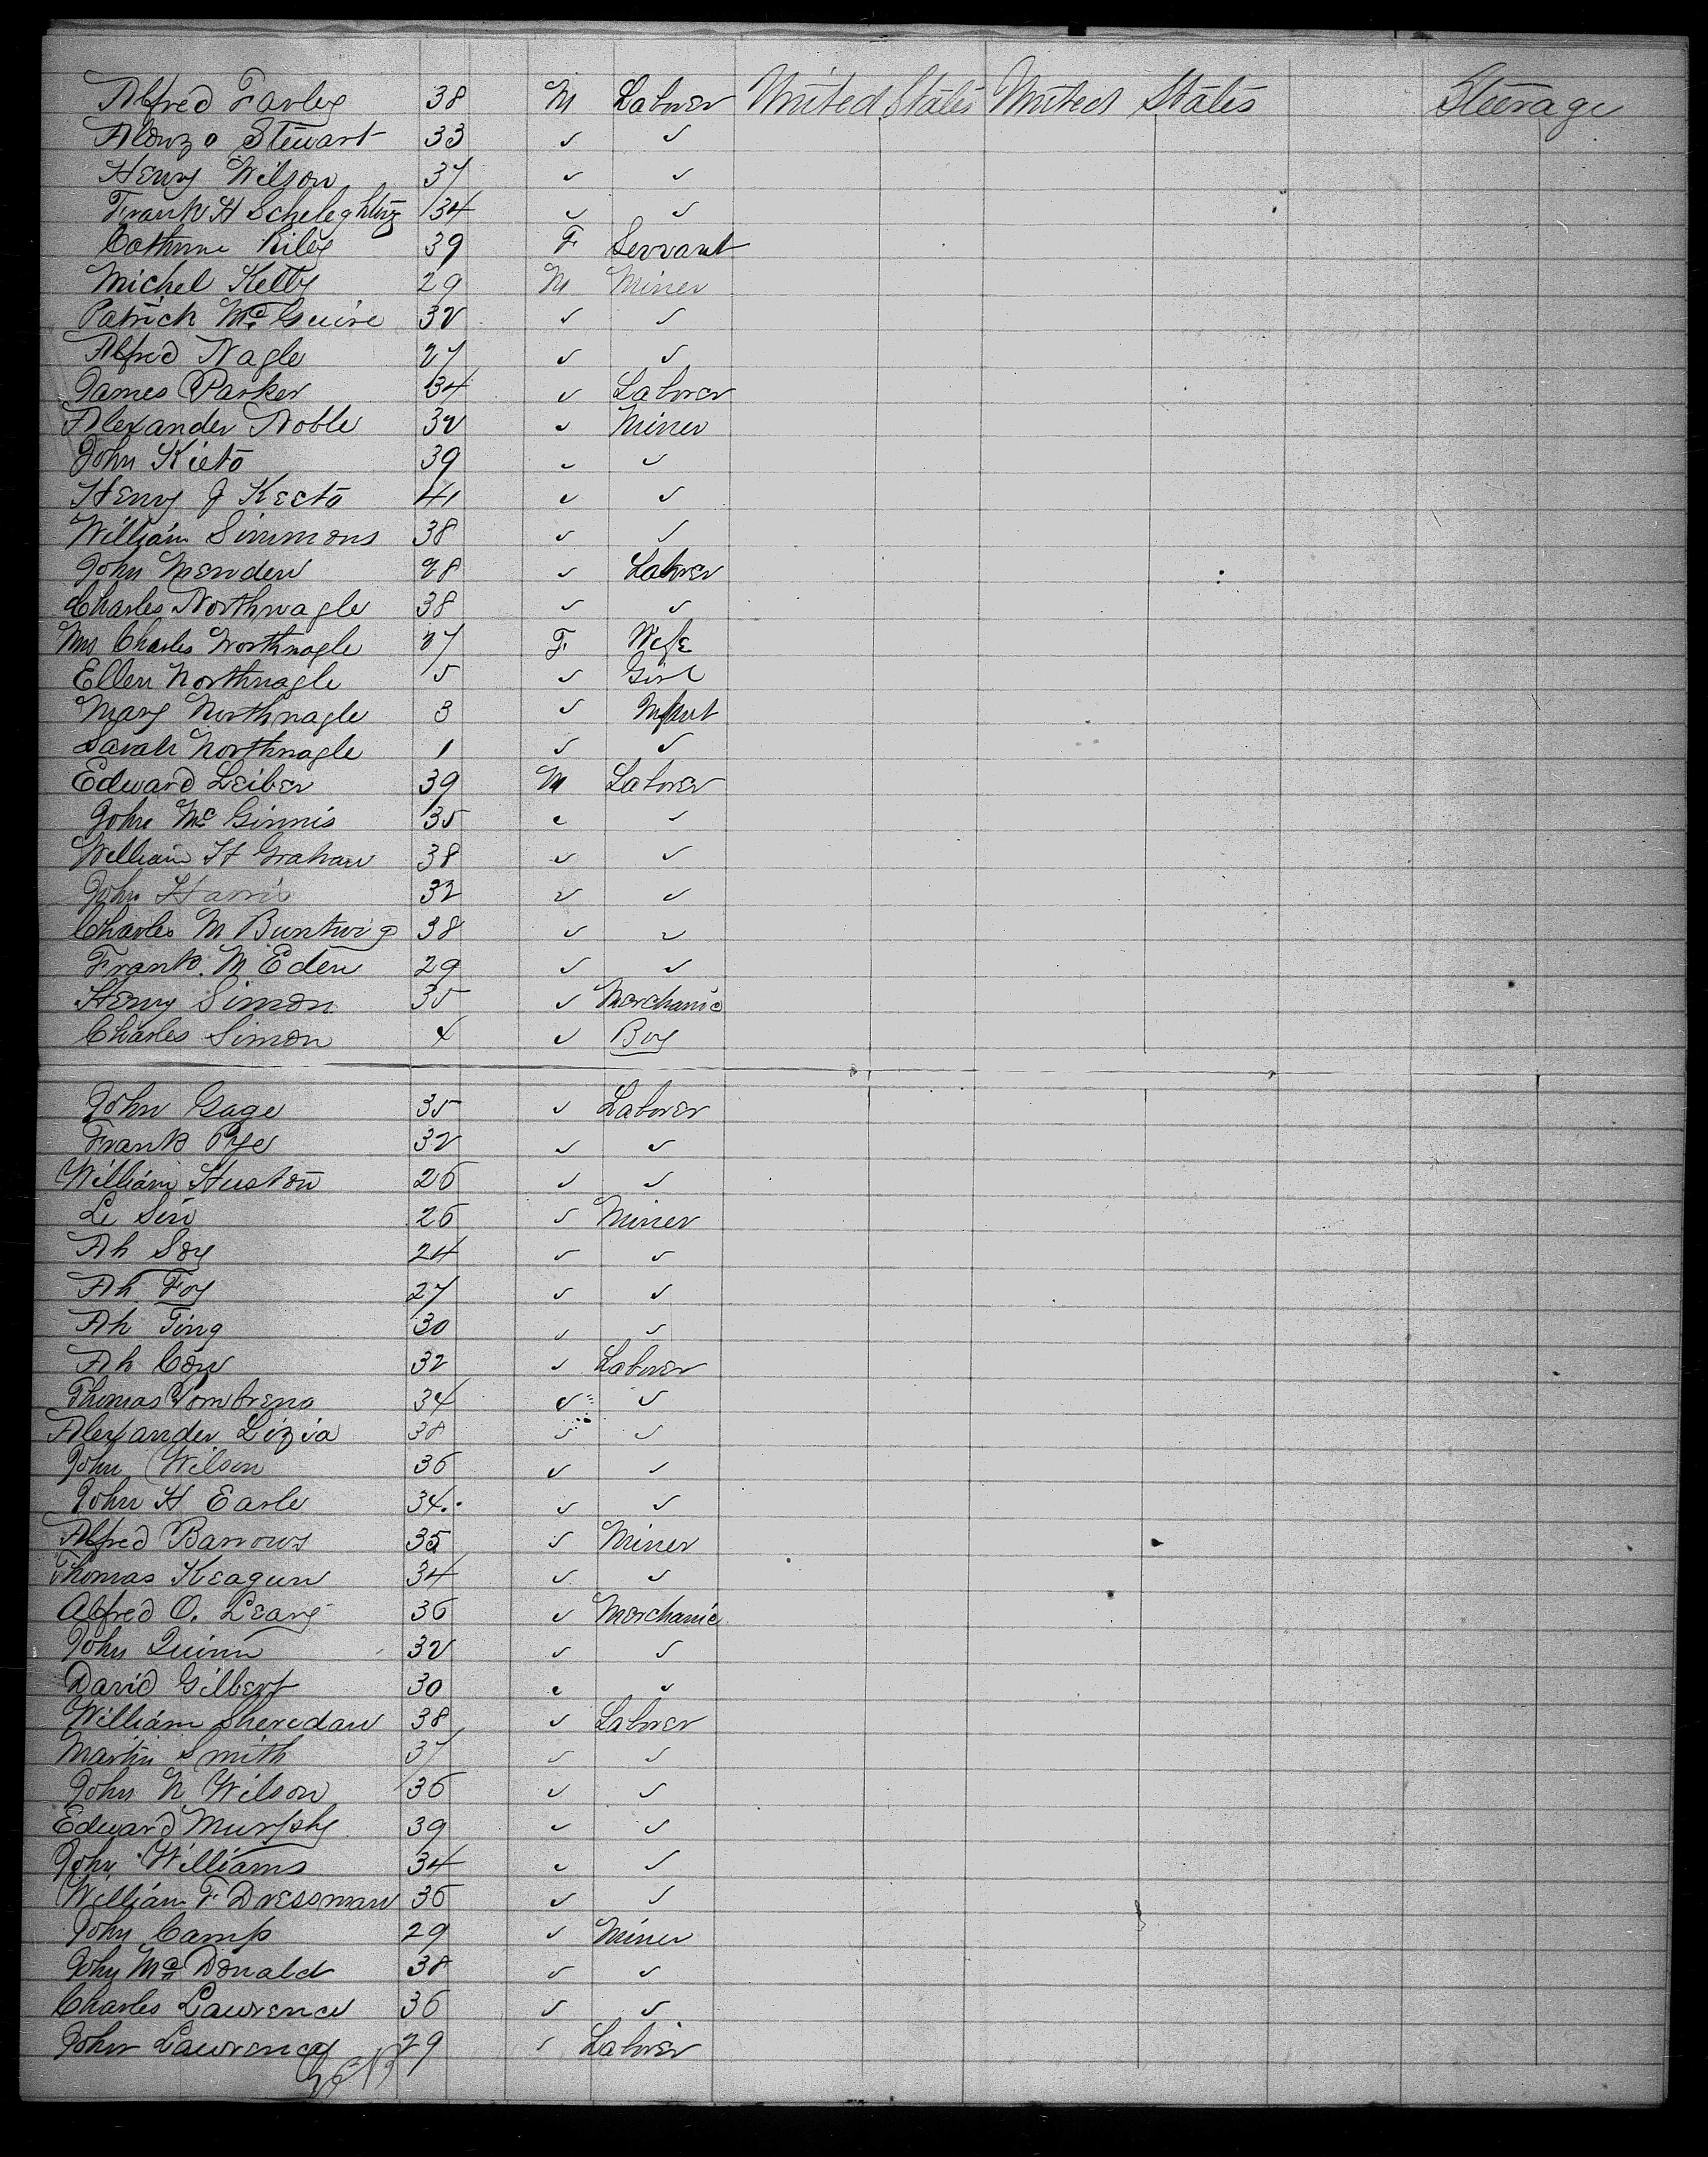 Alfred Farley 38 M Laborer United States United States Steerage
Alonzo Stewart 33 ✓ ✓
Henry Wilson 37 ✓ ✓
Frank H 34 ✓ ✓
Cathrine Riley 39 F Servant
Michel Kelly 29 M Miner
Patrick McGuire 32 ✓ ✓
Alfred Nagle 27 ✓ ✓
James Parker 34 ✓ Laborer
Alexander Noble 32 ✓ Miner
John Kieto 39 ✓ ✓
Henry J Keeto 41 ✓ ✓
William Simmons 38 ✓ ✓
John 28 ✓ Laborer
Charles Northnagle 38 ✓ ✓
Mrs Charles Northnagle 27 F Wife
Ellen Northnagle 5 ✓ Girl
Mary Northnagle 3 ✓ Infant
Sarah Northnagle 1 ✓ ✓
Edward Leiber 39 M Laborer
John McGinnis 35 ✓ ✓
William H Graham 38 ✓ ✓
John Harris 32 ✓ ✓
Charles M 38 ✓ ✓
Frank. M Eden 29 ✓ ✓
Henry Simon 35 ✓ Merchanic
Charles Simon 4 ✓ Boy
John Gage 35 ✓ Laborer
Frank Pye 32 ✓ ✓
William Huston 26 ✓ ✓
Le Sin 26 ✓ Miner
Ah Soy 24 ✓ ✓
Ah Foy 27 ✓ ✓
Ah Ting 30 ✓ ✓
Ah Cow 32 ✓ Laborer
Thomas 34 ✓ ✓
Alexander Lizia 38 ✓ ✓
John Wilson 36 ✓ ✓
John H Earle 34 ✓ ✓
Alfred Barrows 35 ✓ Miner
Thomas Keagun 34 ✓ ✓
Alfred O. Leary 36 ✓ Merchanic
John Quinn 32 ✓ ✓
David Gilbert 30 ✓ ✓
William Sheredan 38 ✓ Laborer
Martin Smith 37 ✓ ✓
John N Wilson 36 ✓ ✓
Edward Murphy 39 ✓ ✓
John Williams 34 ✓ ✓
William F Dressman 36 ✓ ✓
John Camp 29 ✓ Miner
John McDonald 38 ✓ ✓
Charles Lawrence 36 ✓ ✓
John Lawrence 29 ✓ Laborer